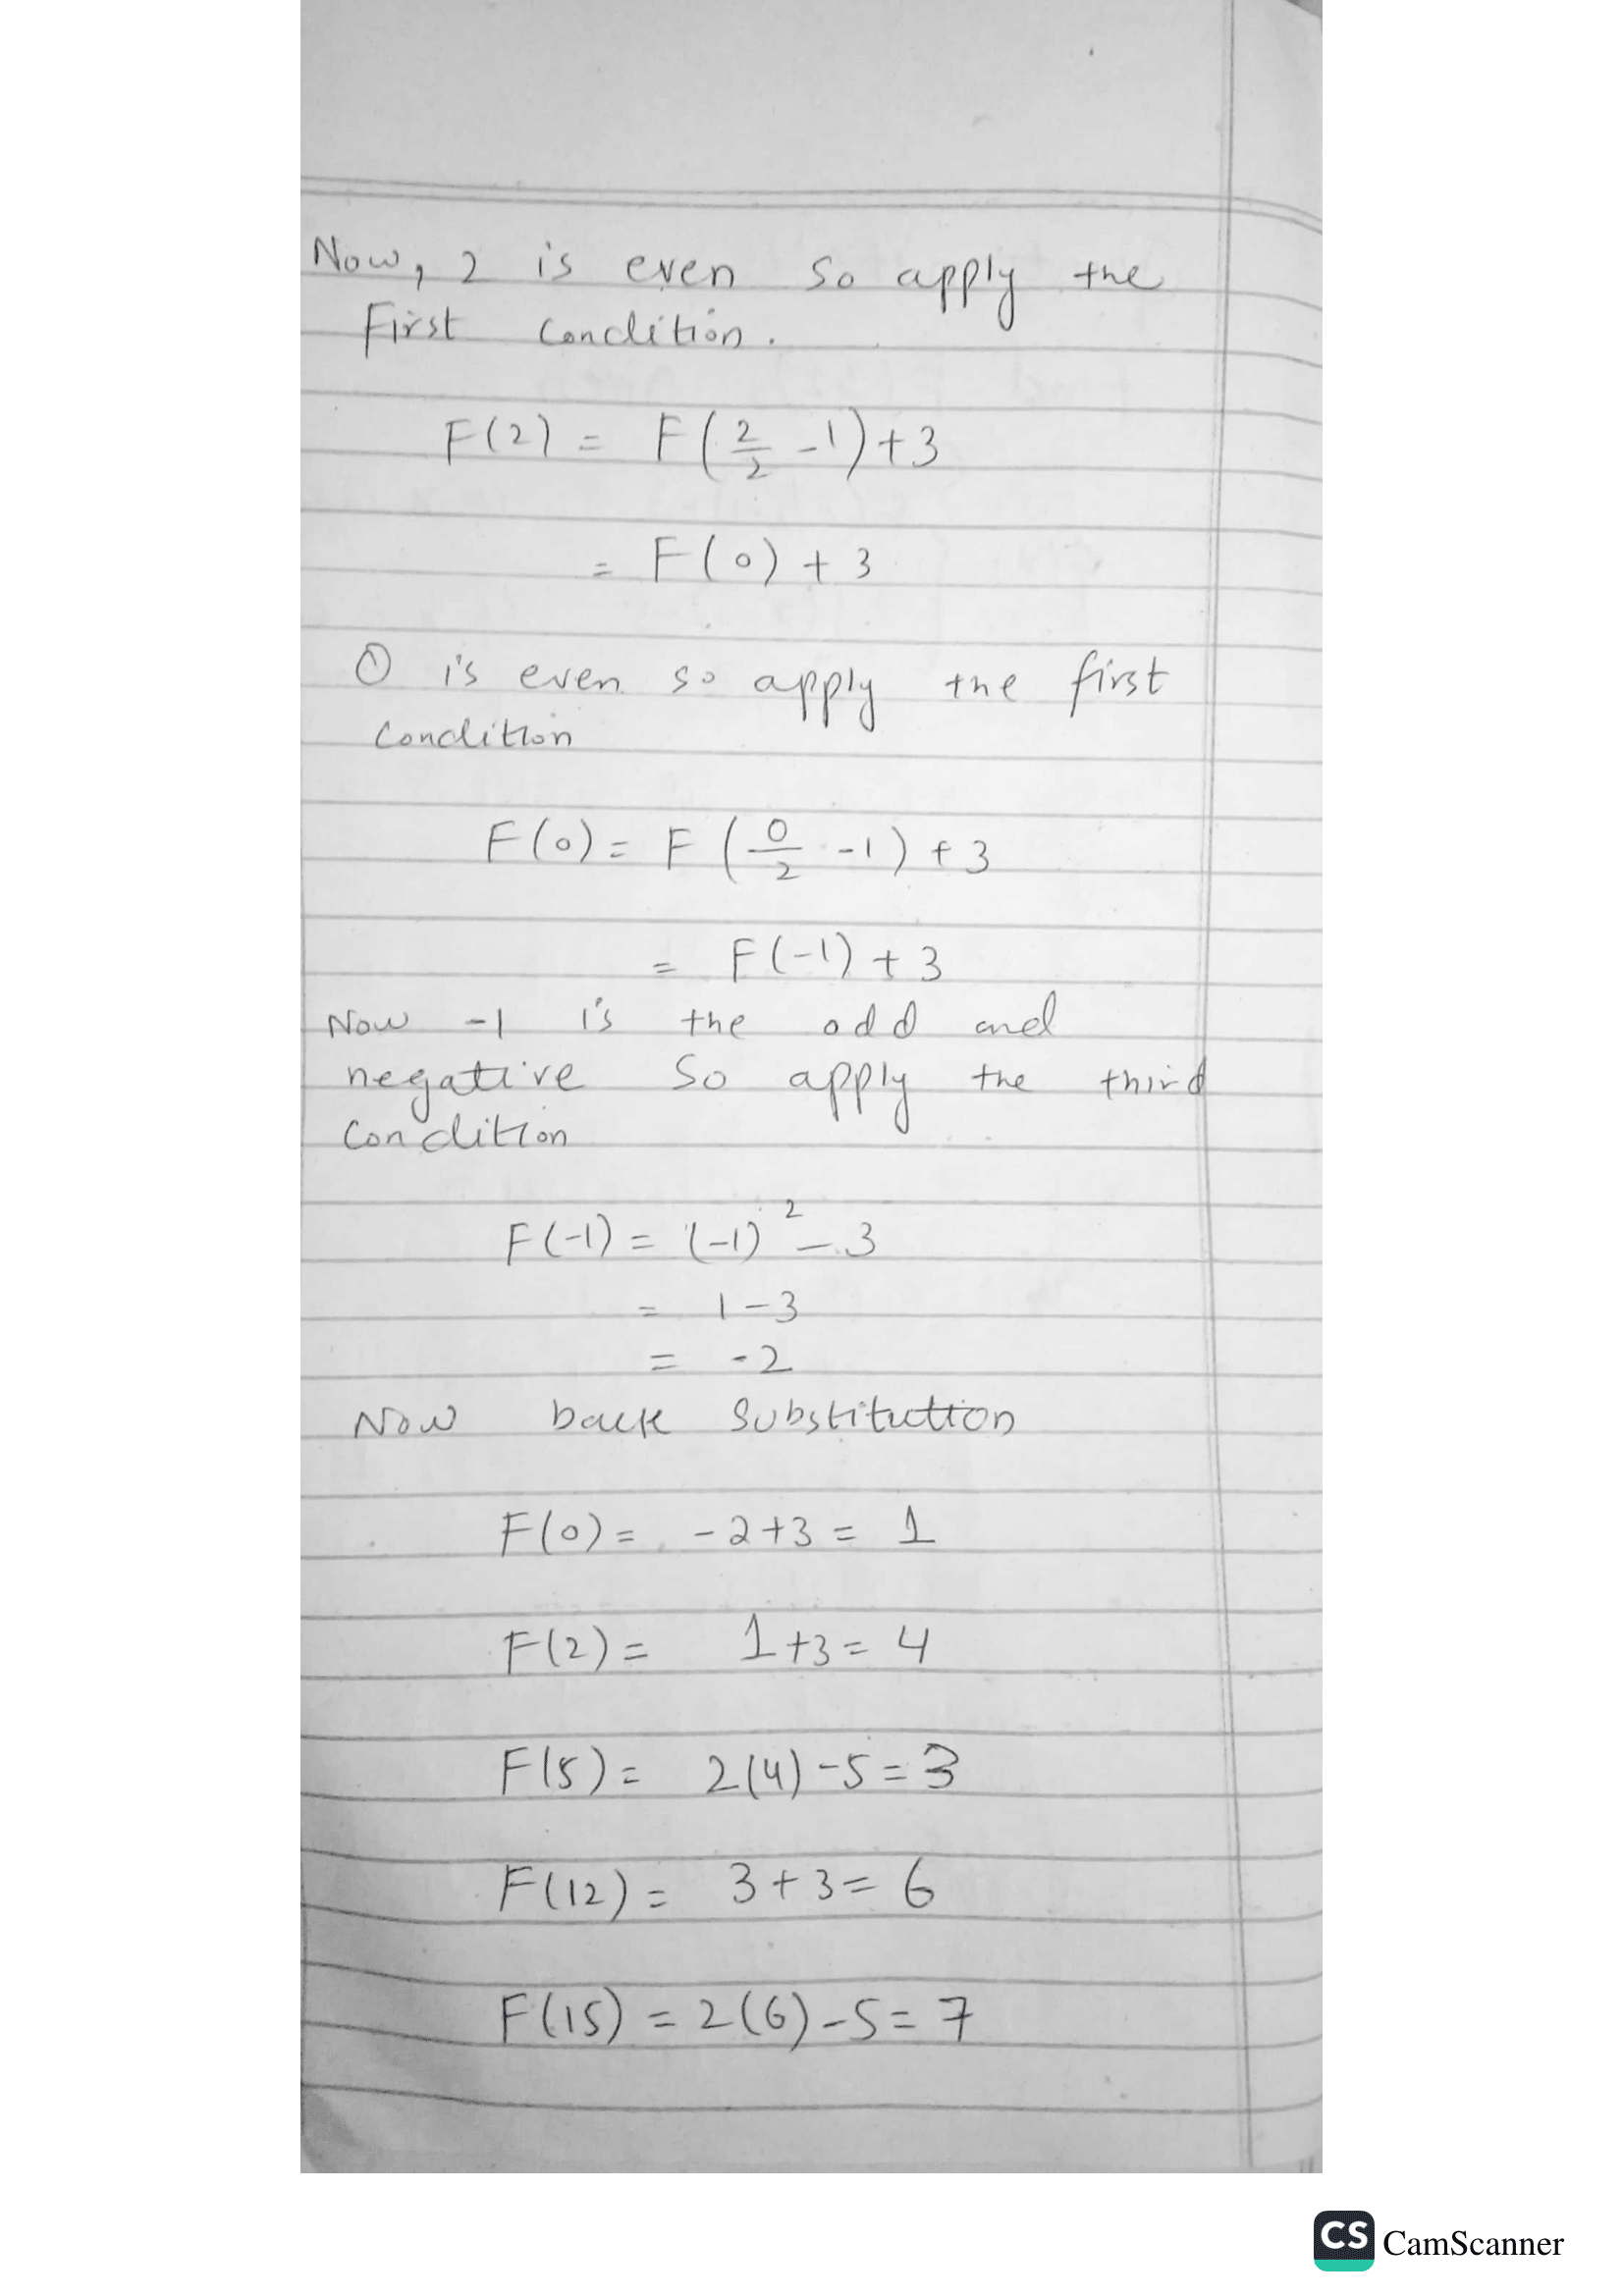 Now, 2 is even so apply the
First Condition.
F(2) = F(2/2 -1)+3
= F(0) + 3
0 is even so apply the first
Condition
F(0) = F(0/2 -1) + 3
= F(-1) + 3
Now -1 is the odd and
negative So apply the third
Condition
F(-1) = (-1)² - 3
= 1-3
= -2
Now back Substitution
F(0) = -2+3 = 1
F(2) = 1+3 = 4
F(5) = 2(4)-5 = 3
F(12) = 3+3 = 6
F(15) = 2(6)-5 = 7
CS CamScanner